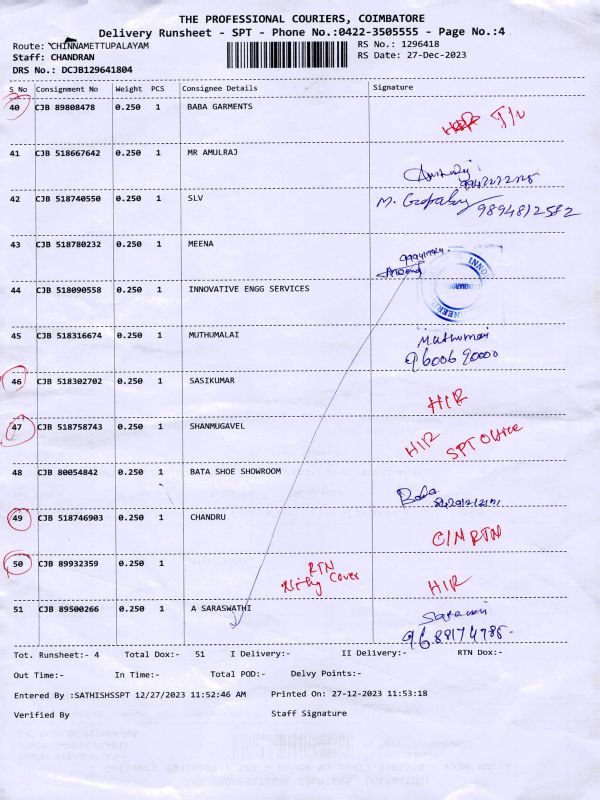 THE PROFESSIONAL COURIERS, COIMBATORE
Delivery Runsheet - SPT - Phone No.:0422-3505555 - Page No.:4
Route: CHINNAMETTUPALAYAM
RS No.: 1296418
Staff: CHANDRAN
RS Date: 27-Dec-2023
DRS No.: DCJB129641804
S_No Consignment No Weight PCS Consignee Details Signature
40 CJB 89808478 0.250 1 BABA GARMENTS
41 CJB 518667642 0.250 1 MR AMULRAJ
42 CJB 518740550 0.250 1 SLV M. Gopal 9894812582
43 CJB 518780232 0.250 1 MEENA
44 CJB 518090558 0.250 1 INNOVATIVE ENGG SERVICES
45 CJB 518316674 0.250 1 MUTHUMALAI
9600690000
46 CJB 518302702 0.250 1 SASIKUMAR HIR
47 CJB 518758743 0.250 1 SHANMUGAVEL HIR SPT Office
48 CJB 80054842 0.250 1 BATA SHOE SHOWROOM
49 CJB 518746903 0.250 1 CHANDRU
CIN RTN
50 CJB 89932359 0.250 1 RTN
Cover HIR
51 CJB 89500266 0.250 1 A SARASWATHI
9688174785
Tot. Runsheet:- 4 Total Dox:- 51 I Delivery:- II Delivery:- RTN Dox:-
Out Time:- In Time:- Total POD:- Delvy Points:-
Entered By :SATHISHSSPT 12/27/2023 11:52:46 AM Printed On: 27-12-2023 11:53:18
Verified By Staff Signature